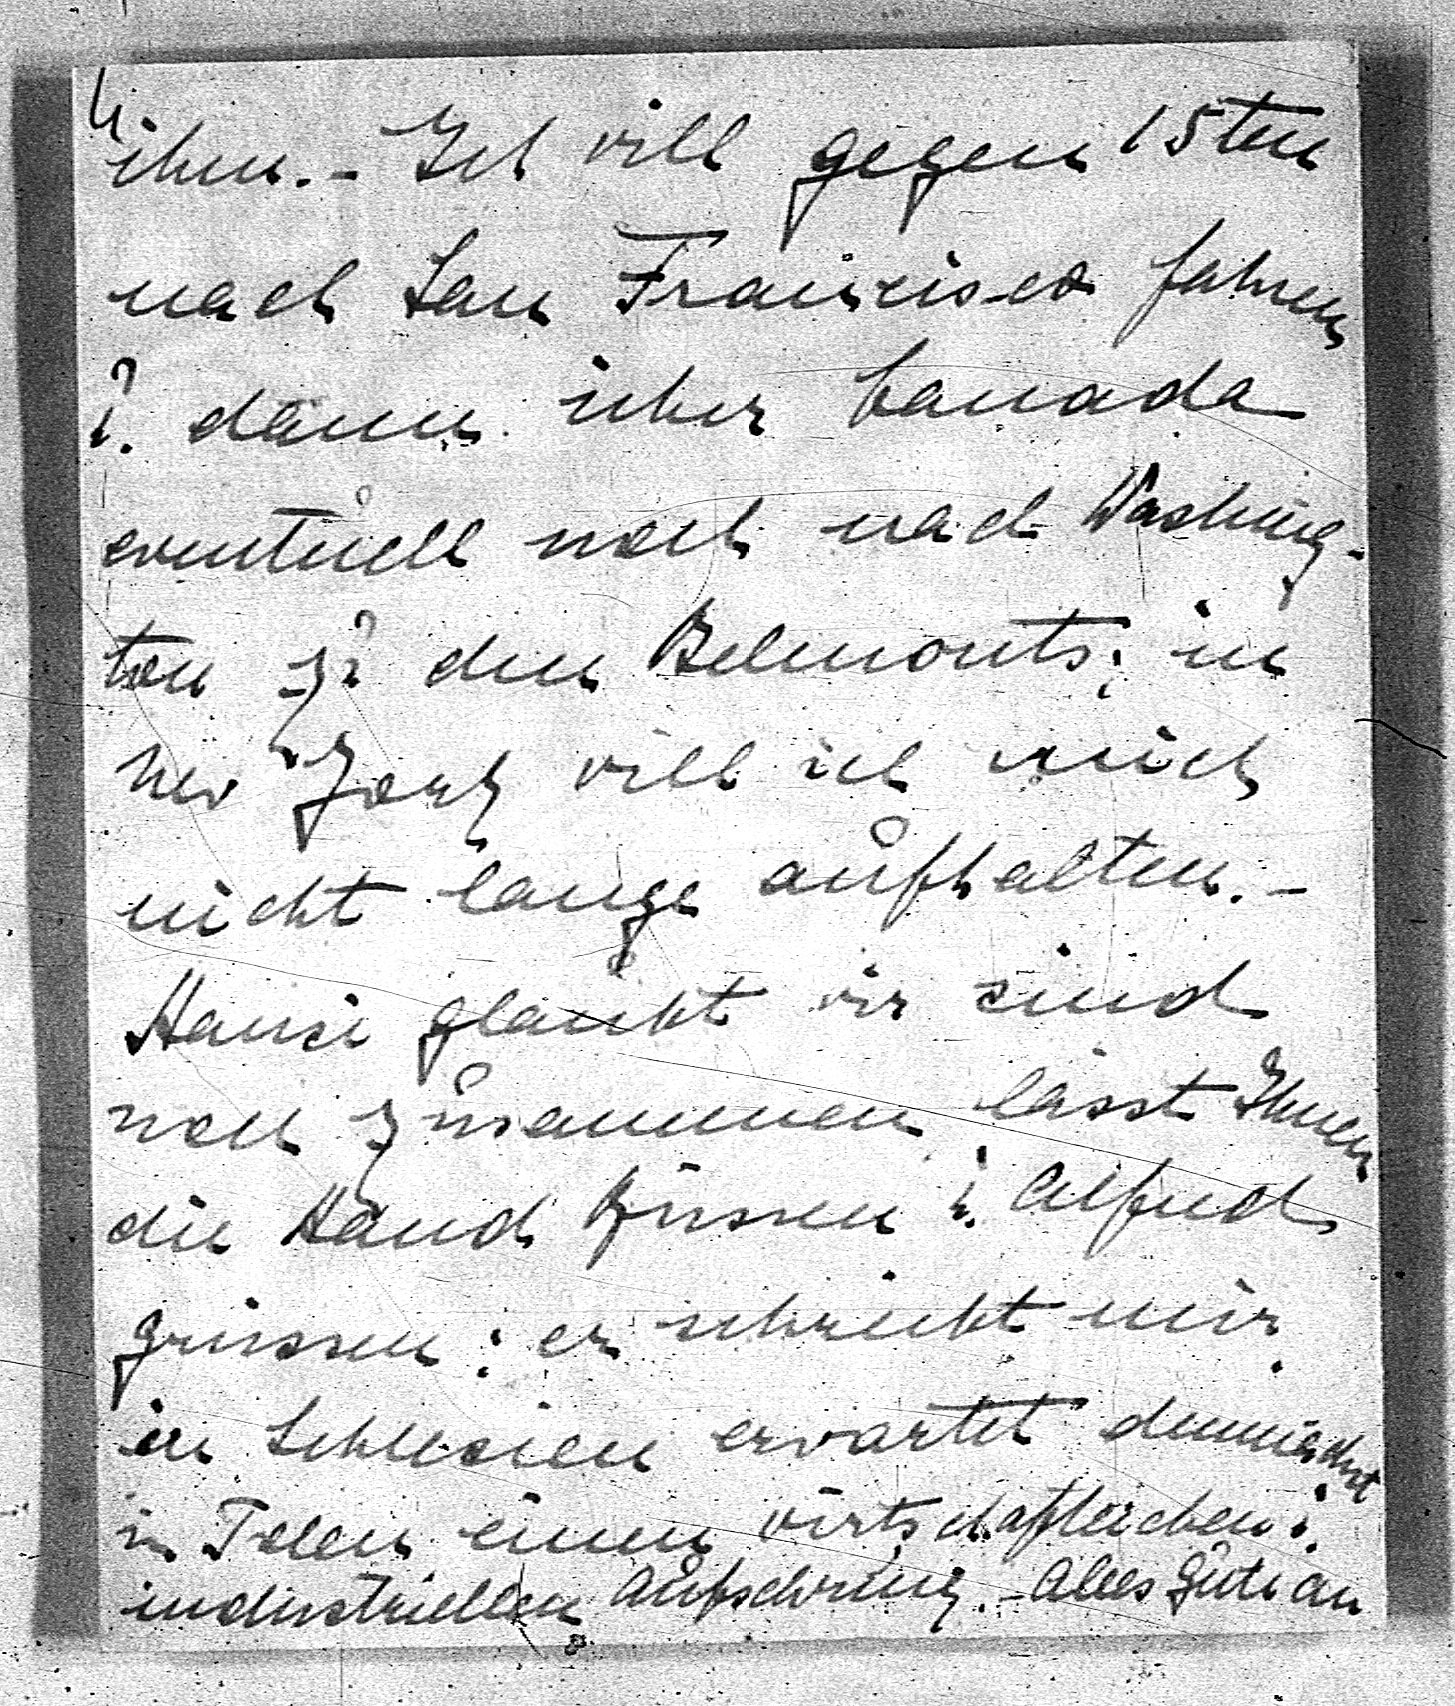 ihm. - Ich will gegen 15ten
nach San Francisco fahren
u. dann über Canada
eventuell noch nach Washing-
ton zu den Belmonts; in
New York will ich mich
nicht lange aufhalten. -
Hansi glaubt wir sind
noch zusammen lässt Ihnen
die Hand küssen u. Alfred
grüssen; er schreibt mir
in Schlesien erwartet demnächst
in Polen einen wirtschaftlichen u.
industriellen Aufschwung. - Alles Gute an